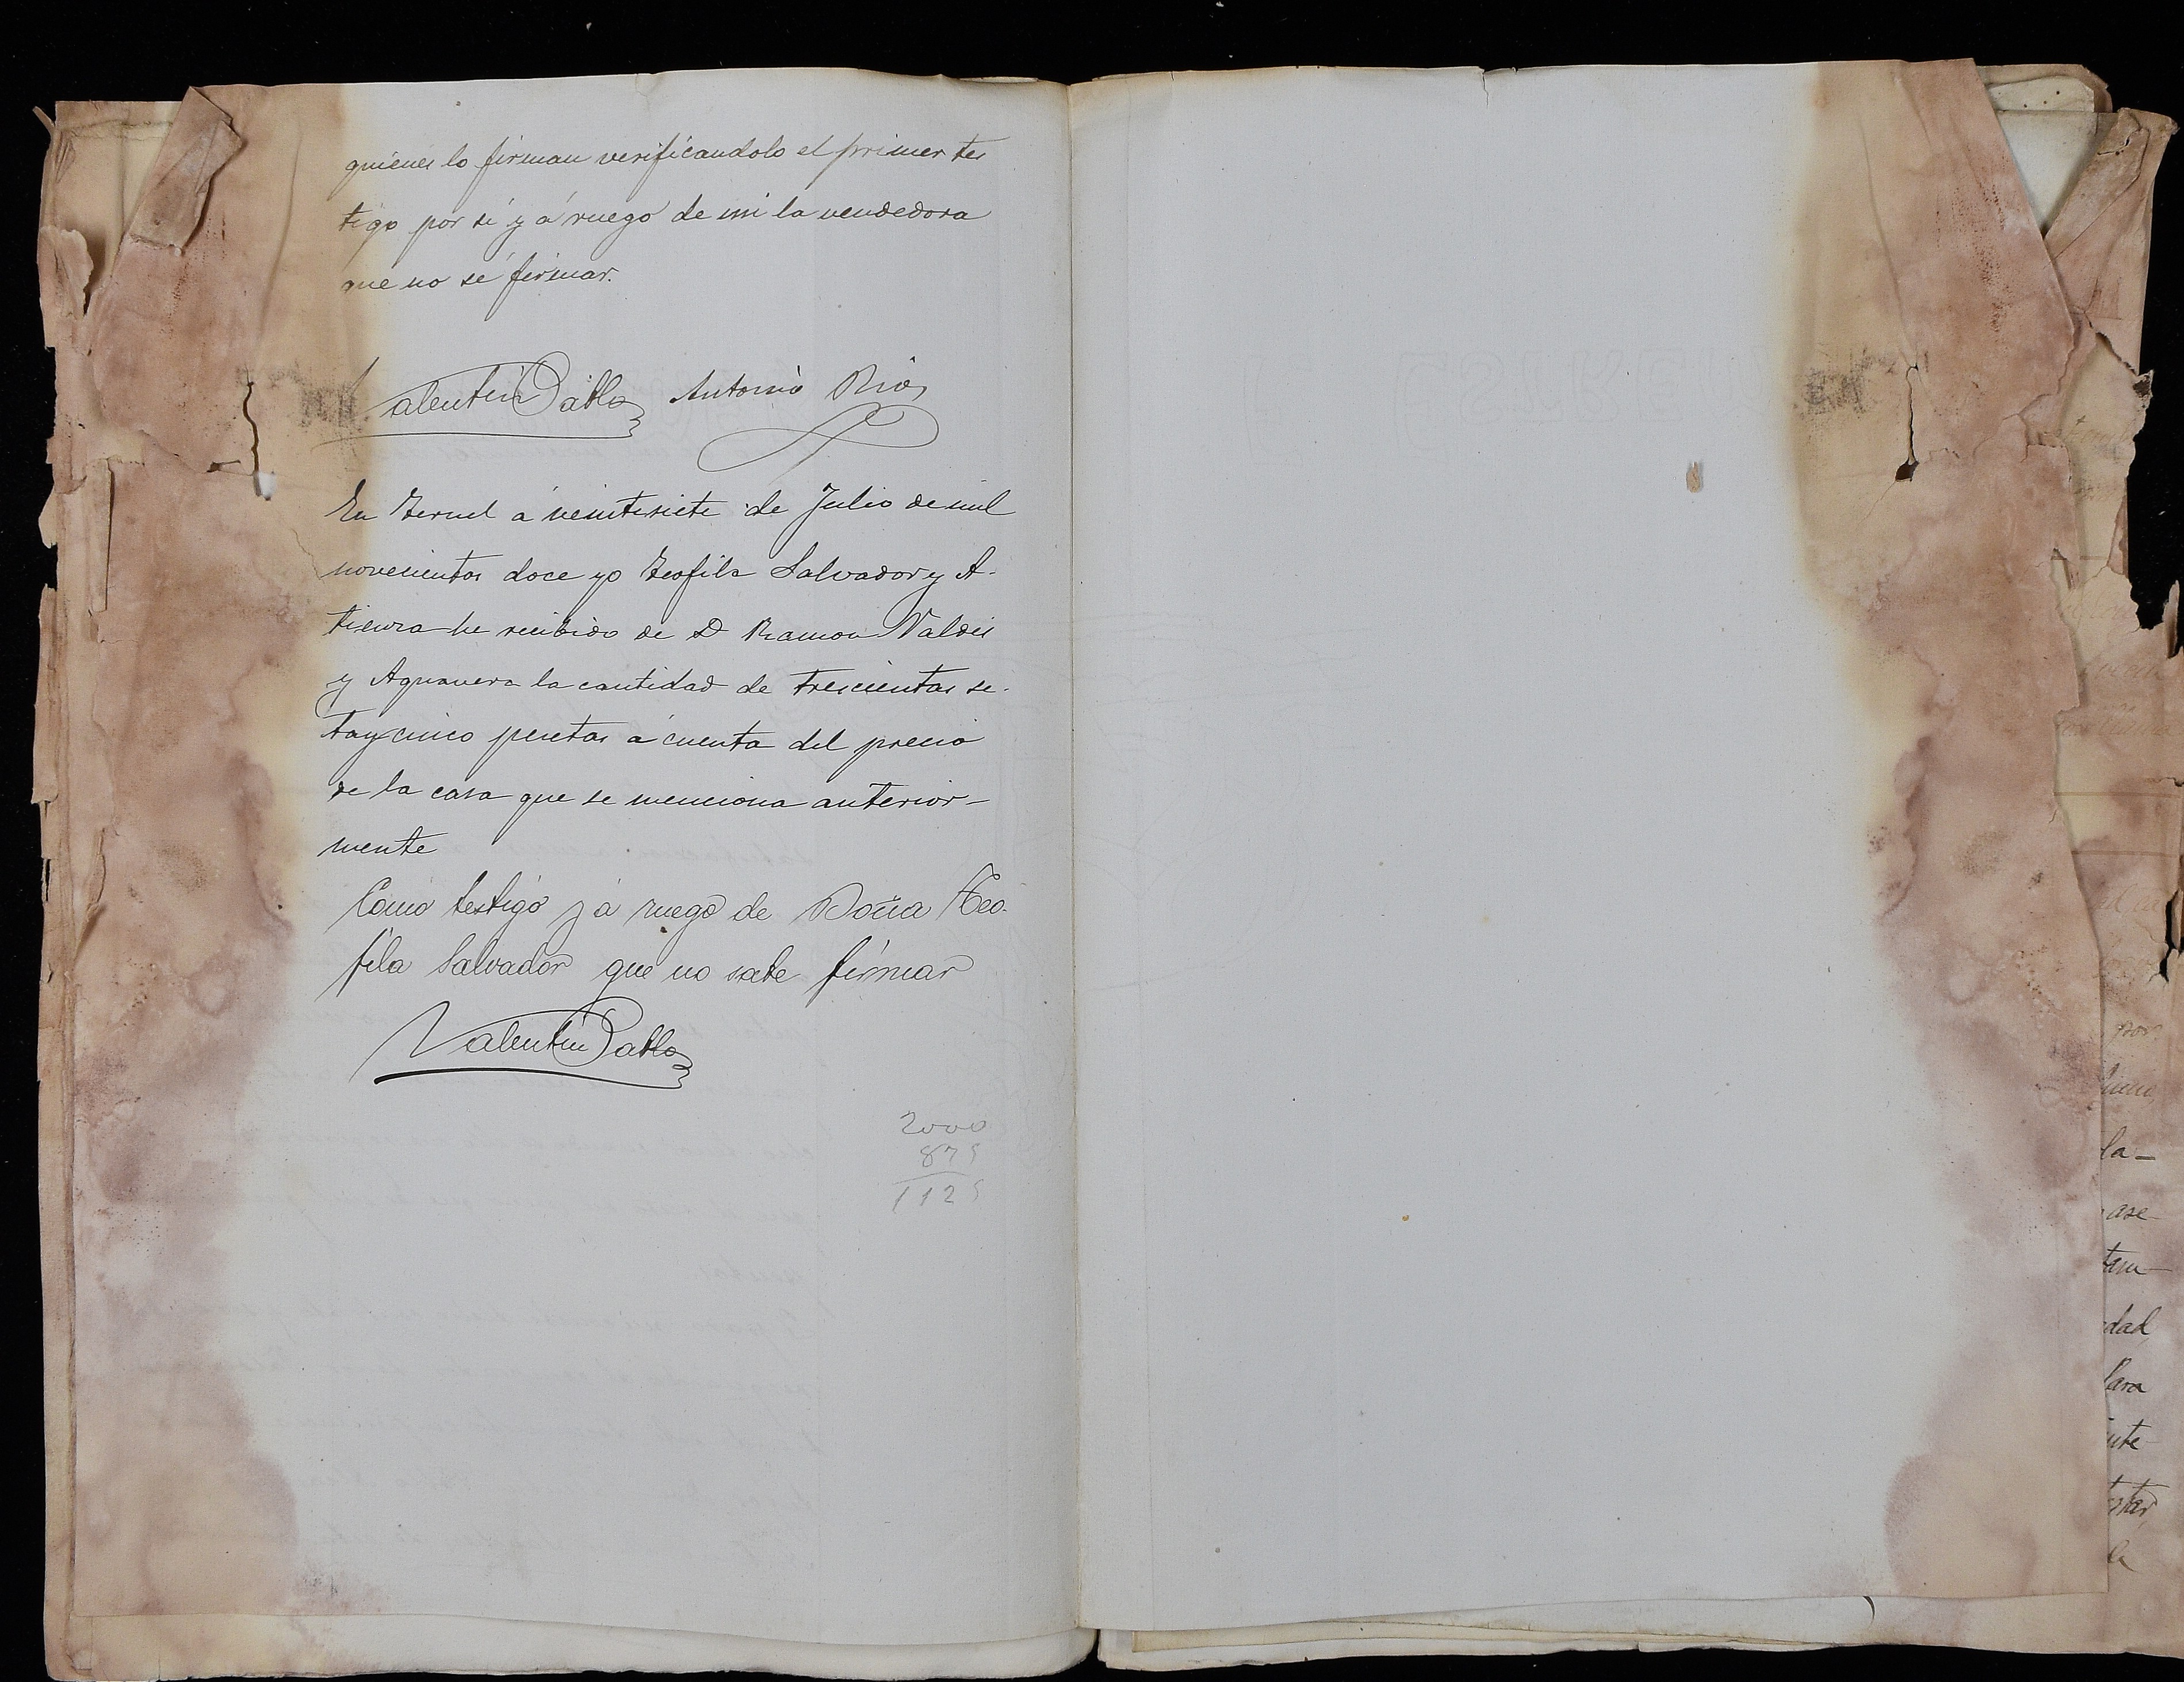 quienes lo firman verificandolo el primer tes
tigo por sí y á ruego de mi la vendedora
que no sé firmar.
Valentín Pablo Antonio Rios
En Teruel á veintisiete de Julio de mil
novecientos doce yo Teofila Salvador y A-
tienza he recibido de D Ramon Valdés
y Aguavera la cantidad de trescientas se-
tay cinco pesetas á cuenta del precio
de la casa que se menciona anterior-
mente
Como testigo y á ruego de Doña Teo-
fila Salvador que no sabe firmar
Valentín Pablo
2000
875
1125
por
la-
ase
tam
dad